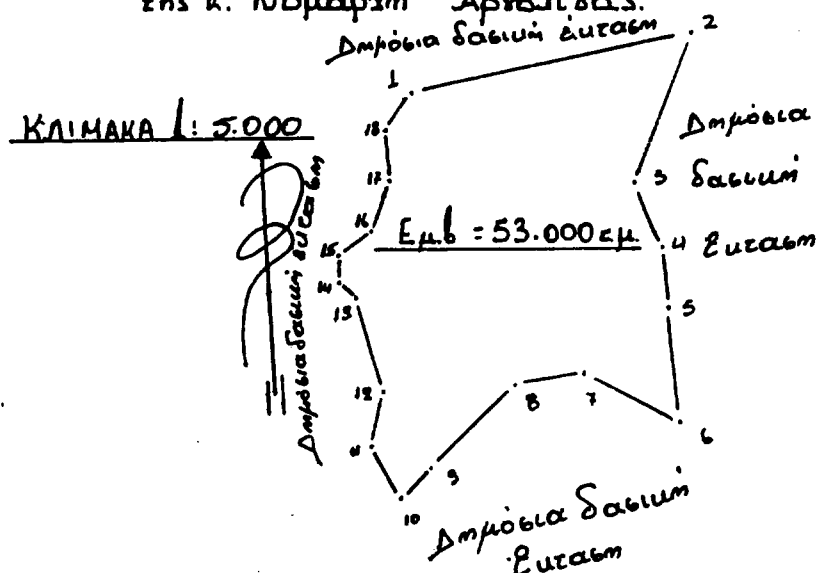 της κ. Νομάρχη Αργολίδας.
Δημόσια δασική έκταση
ΚΛΙΜΑΚΑ 1:5.000
Δημόσια δασική έκταση
Εμβ = 53.000 τμ.
Δημόσια
δασική
έκταση
Δημόσια δασική
έκταση
1
2
3
4
5
6
7
8
9
10
11
12
13
14
15
16
17
18